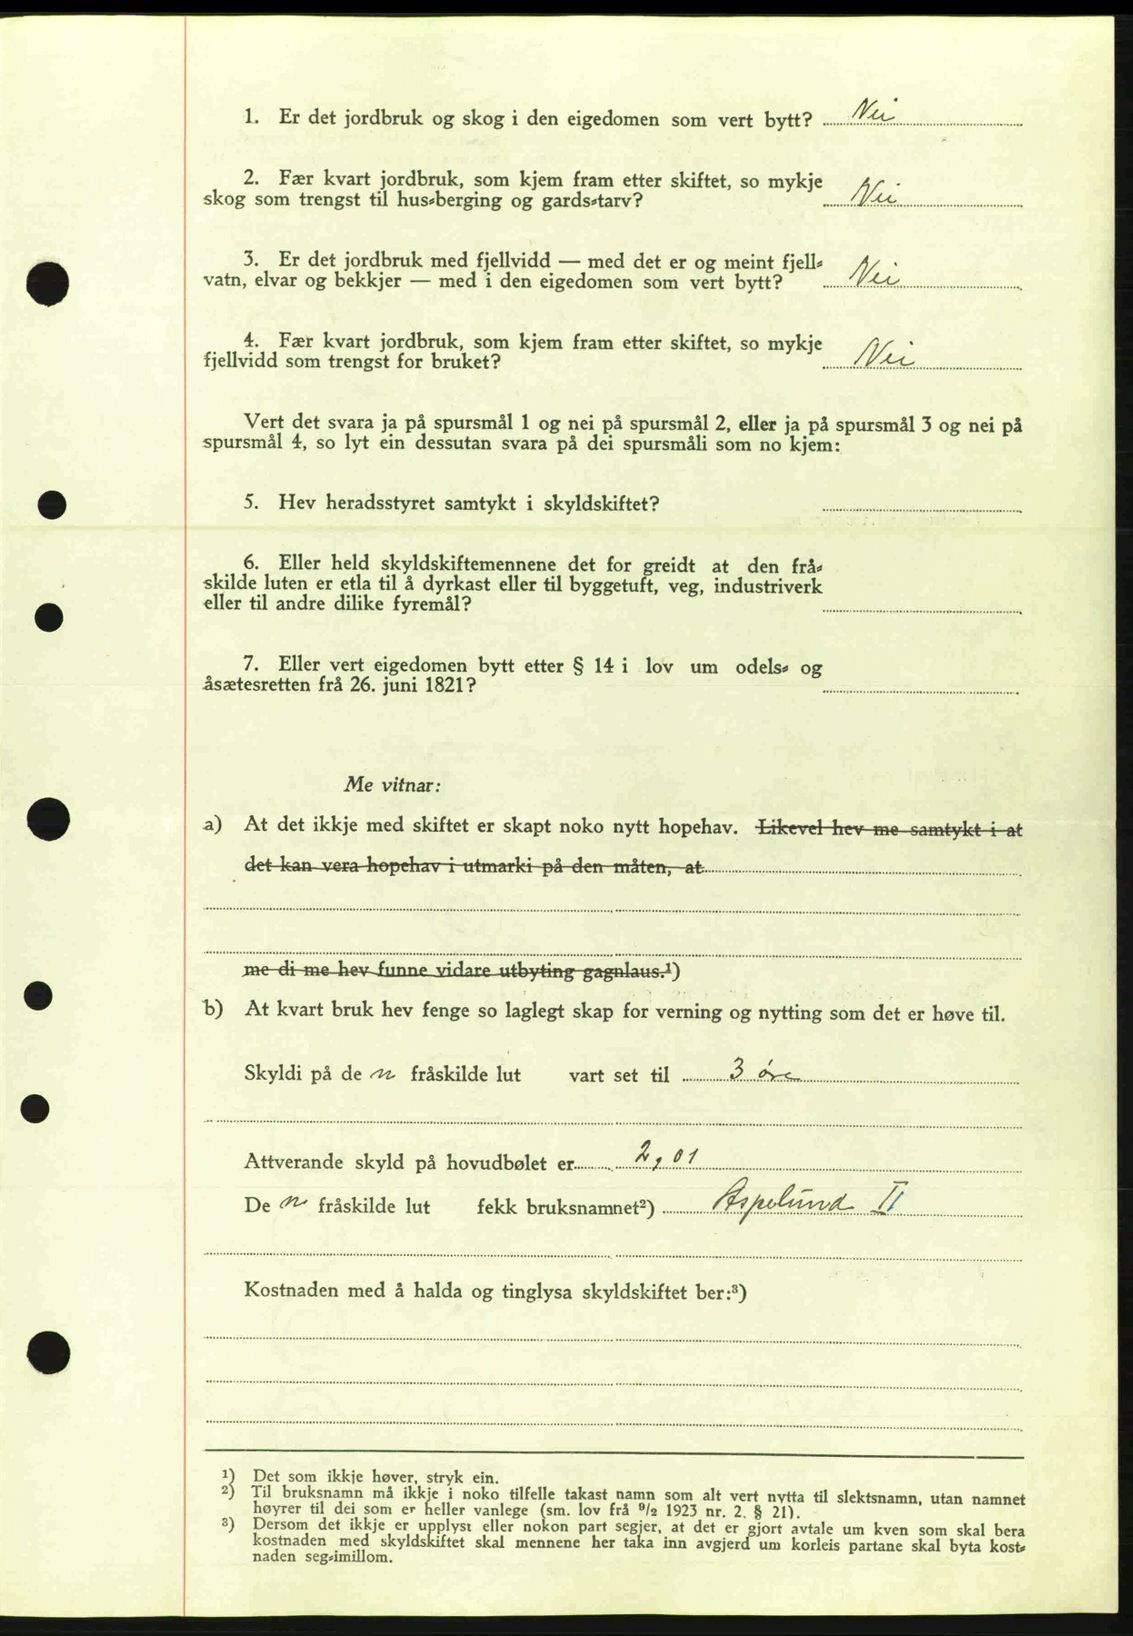 1. Er det jordbruk og skog i den eigedomen som vert bytt? Nei
2. Fær kvart jordbruk, som kjem fram etter skiftet, so mykje
skog som trengst til hus-berging og gards-tarv? Nei
3. Er det jordbruk med fjellvidd — med det er og meint fjell-
vatn, elvar og bekkjer — med i den eigedomen som vert bytt? Nei
4. Fær kvart jordbruk, som kjem fram etter skiftet, so mykje
fjellvidd som trengst for bruket? Nei
Vert det svara ja på spursmål 1 og nei på spursmål 2, eller ja på spursmål 3 og nei på
spursmål 4, so lyt ein dessutan svara på dei spursmåli som no kjem:
5. Hev heradsstyret samtykt i skyldskiftet?
6. Eller held skyldskiftemennene det for greidt at den frå-
skilde luten er etla til å dyrkast eller til byggetuft, veg, industriverk
eller til andre dilike fyremål?
7. Eller vert eigedomen bytt etter § 14 i lov um odels- og
åsætesretten frå 26. juni 1821?
Me vitnar:
a) At det ikkje med skiftet er skapt noko nytt hopehav. Likevel hev me samtykt i at
det kan vera hopehav i utmarki på den måten, at
me di me hev funne vidare utbyting gagnlaus.¹)
b) At kvart bruk hev fenge so laglegt skap for verning og nytting som det er høve til.
Skyldi på de n fråskilde lut vart set til 3 øre
Attverande skyld på hovudbølet er 2,01
De n fråskilde lut fekk bruksnamnet²) Aspelund II
Kostnaden med å halda og tinglysa skyldskiftet ber:³)
¹) Det som ikkje høver, stryk ein.
²) Til bruksnamn må ikkje i noko tilfelle takast namn som alt vert nytta til slektsnamn, utan namnet
høyrer til dei som er heller vanlege (sm. lov frå 9/2 1923 nr. 2. § 21).
³) Dersom det ikkje er upplyst eller nokon part segjer, at det er gjort avtale um kven som skal bera
kostnaden med skyldskiftet skal mennene her taka inn avgjerd um korleis partane skal byta kost-
naden seg-imillom.